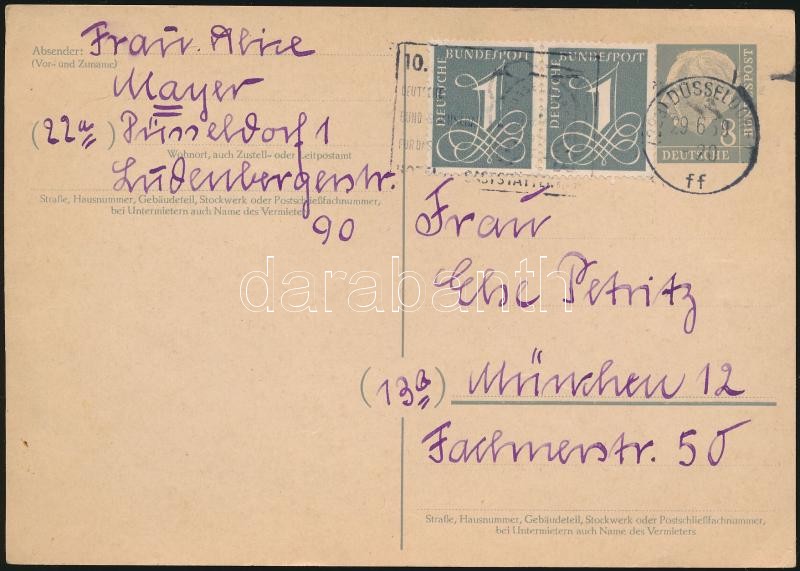 Absender: Frau Alice
(Vor- und Zuname)
Mayer
(22a) Düsseldorf 1
Wohnort, auch Zustell- oder Leitpostamt
Ludenbergerstr.
Straße, Hausnummer, Gebäudeteil, Stockwerk oder Postschließfachnummer,
bei Untermietern auch Name des Vermieters
90
10.
GASTSTÄTTEN
DEUTSCHE BUNDESPOST
1
DEUTSCHE BUNDESPOST
1
BUNDESPOST
8
DEUTSCHE
DÜSSELDORF
29.6.
ff
Frau
Else Petritz
(13b) München 12
Fachnerstr. 50
Straße, Hausnummer, Gebäudeteil, Stockwerk oder Postschließfachnummer,
bei Untermietern auch Name des Vermieters
darabanth